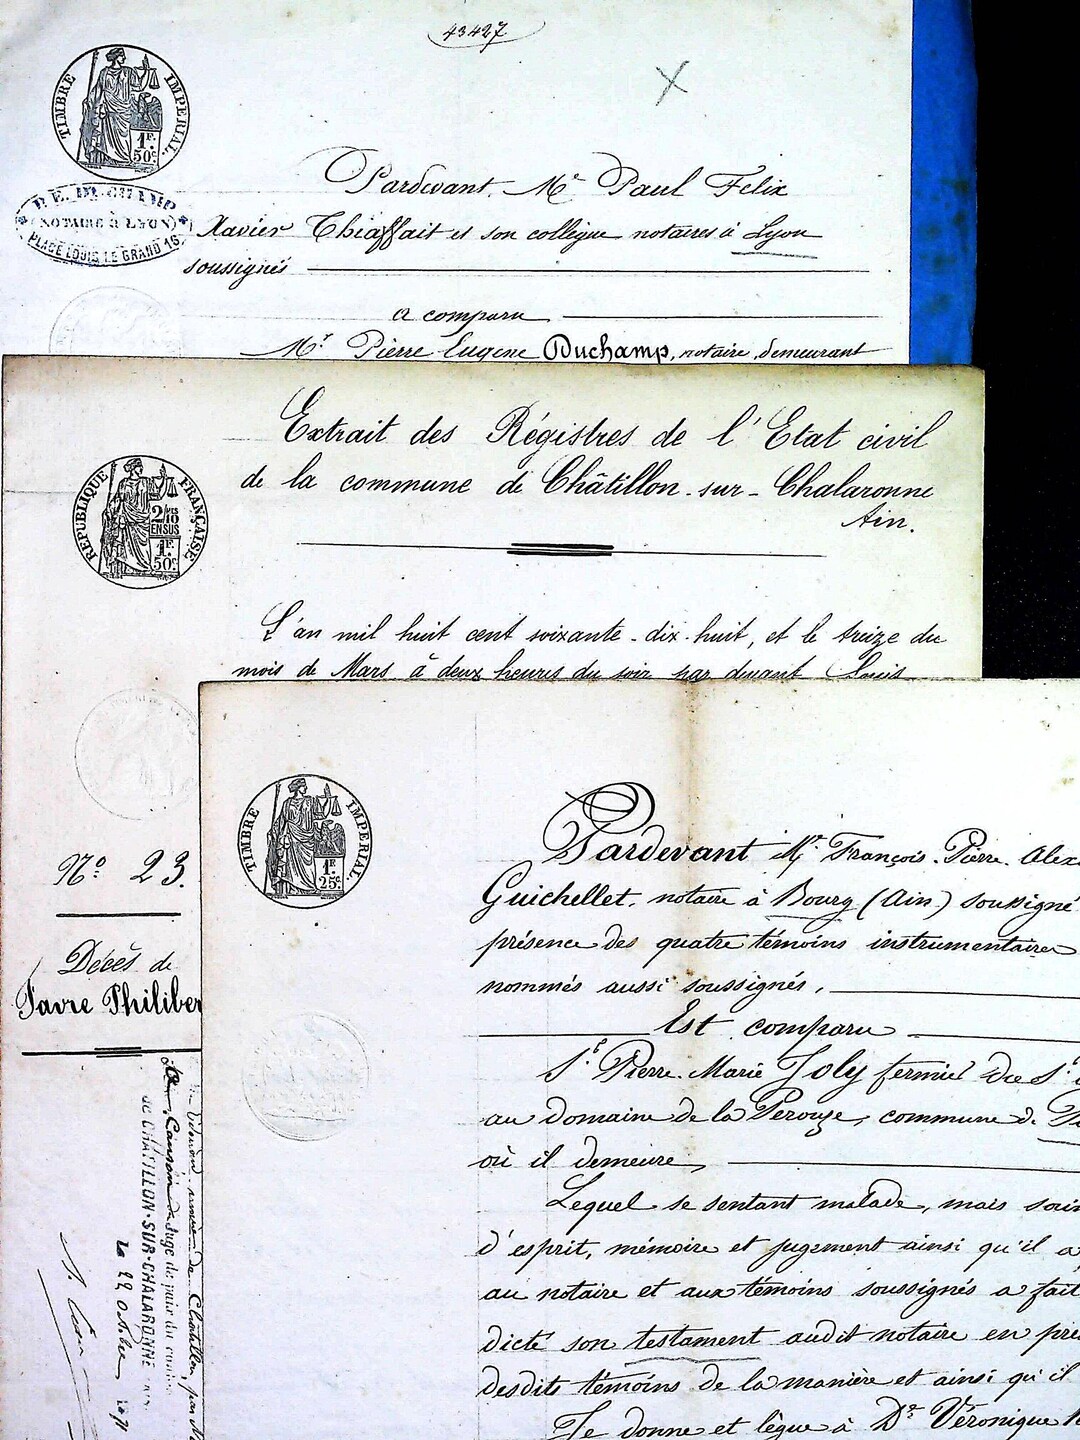 43427
X
TIMBRE IMPERIAL.
1F.
50c
NOTAIRE À LYON
PLACE LOUIS LE GRAND 16
Pardevant Me Paul Felix
Xavier Thiaffait et son collègue notaires à Lyon
soussignés
a comparu
Mr Pierre Eugene Duchamp, notaire, demeurant
Extrait des Régistres de l'Etat civil
de la commune de Châtillon-sur-Chalaronne
Ain.
REPUBLIQUE FRANÇAISE
2/10
EN SUS
1F.
50c
L'an mil huit cent soixante-dix-huit, et le treize du
mois de Mars à deux heures du soir par devant Louis
No 23.
Décès de
Favre Philiber
juge de paix du canton
DE CHÂTILLON-SUR-CHALARONNE
Le 22 octobre
TIMBRE IMPERIAL.
1F.
25c
Pardevant Me François-Pierre-Alex
Guichellet, notaire à Bourg (Ain) soussigné
présence des quatre témoins instrumentaires
nommés aussi soussignés,
Est comparu
Sr Pierre-Marie Joly fermier du Sr
au domaine de la Perouze, commune de
où il demeure,
Lequel se sentant malade, mais sain
d'esprit, mémoire et jugement ainsi qu'il a
au notaire et aux témoins soussignés a fait
dicté son testament audit notaire en pré
desdits témoins de la manière et ainsi qu'il
Je donne et lègue à De Véronique